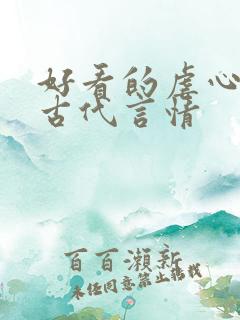 好看的虐心
古代言情
百百瀬新
未经同意禁止转载